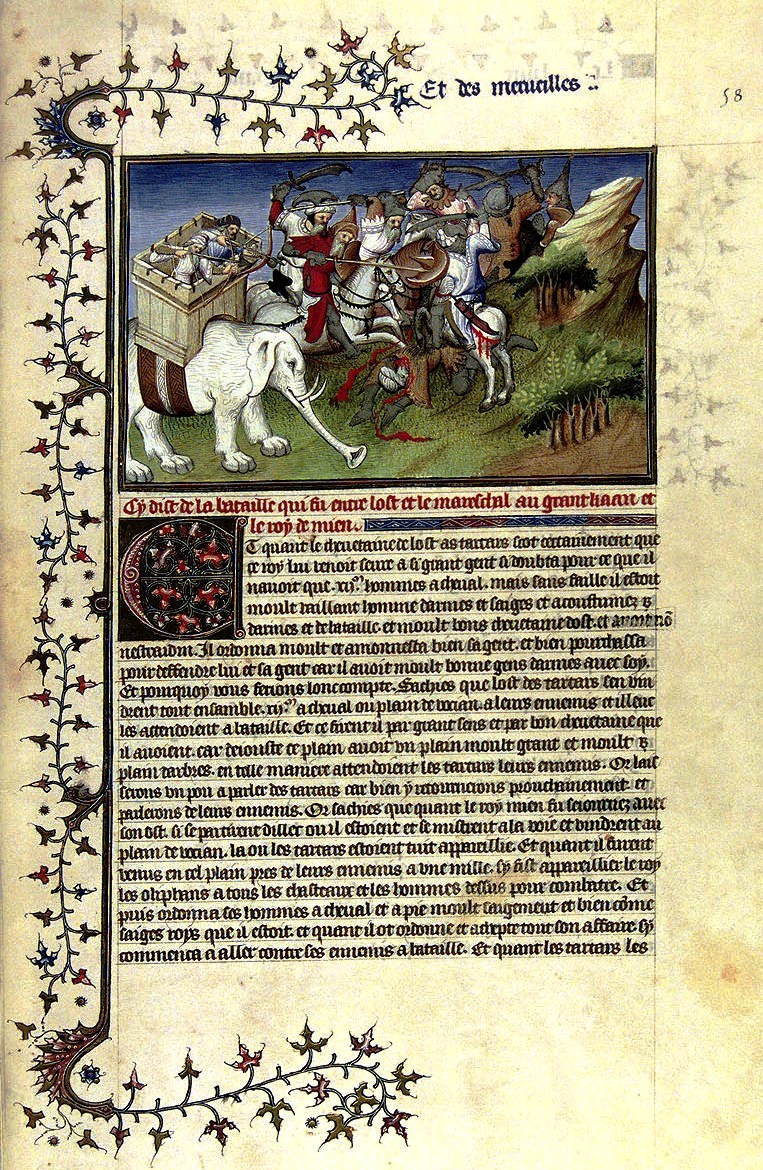 Et des merueilles
58
Cy dist de la bataille qui fu entre lost et le mareschal au grant kaan et
le roy de mien.
Et quant le cheuetaine de lost as tartars scot certainement que
ce roy lui venoit seure a si grant gent si doubta pour ce que il
nauoit que .xij.m hommes a cheual. mais sans faille il estoit
moult vaillant homme darmes et saiges et acoustumez
darmes et de bataille. et moult bons cheuetaine dost. et auoit nō
nestraidin. Il ordonna moult et amonnesta bien sa gent. et bien pourchassa
pour deffendre lui et sa gent car il auoit moult bonne gens darmes auec soy.
Et pourquoy vous ferons lonc compte. Sachies que lost des tartars sen vin
drent tout ensamble .xij.m a cheual ou plain de vocian. a leurs ennemis et illeuc
les attendoient a bataille. Et ce firent il par grant sens et par bon cheuetaine que
il auoient. car deiouste ce plain auoit vn plain moult grant et moult
plain darbres. en telle maniere attendoient les tartars leurs ennemis. Or lais
serons vn pou a parler des tartars car bien y retournerons prouchainement. et
parlerons de leurs ennemis. Or sachies que quant le roy mien fu seiournez auec
son ost. si se partirent dillec ou il estoient et se mistrent a la voie et vindrent au
plain de vocian. la ou les tartars estoient tuit appareillie. Et quant il furent
venus en cel plain pres de leurs ennemis a vne mille. sy fist appareillier le roy
les oliphans a tous les chasteaux et les hommes dessus pour combatre. Et
puis ordonna ses hommes a cheual et a pie moult saigement et bien cōme
saiges roys que il estoit. et quant il ot ordonne et achepte tout son affaire sy
commenca a aller contre ses ennemis a bataille. Et quant les tartars les